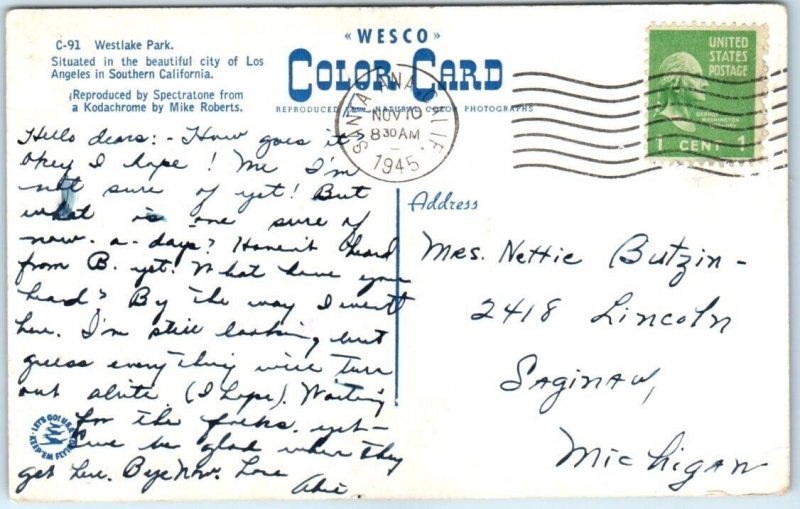 C-91 Westlake Park.
Situated in the beautiful city of Los
Angeles in Southern California.
Reproduced by Spectratone from
a Kodachrome by Mike Roberts.
«WESCO»
COLOR CARD
REPRODUCED from NATURAL COLOR PHOTOGRAPHS
SANTA ANA CALIF.
NOV 10
8 30 AM
1945
UNITED
STATES
POSTAGE
1 CENT 1
Hello dears:- How goes it
Okey I hope! Me I'm
not sure of yet! But
what is one sure of
now-a-days? Haven't heard
from B. yet. What have you
heard? By the way I
here. I'm still looking, but
guess everything will turn
out alrite (I hope). Waiting
for the folks yet-
be glad when they
get here. Bye Now. Love
LET'S GO! U.S.A.
KEEP 'EM FLYING
Address
Mrs. Nettie Butzin-
2418 Lincoln
Saginaw,
Michigan